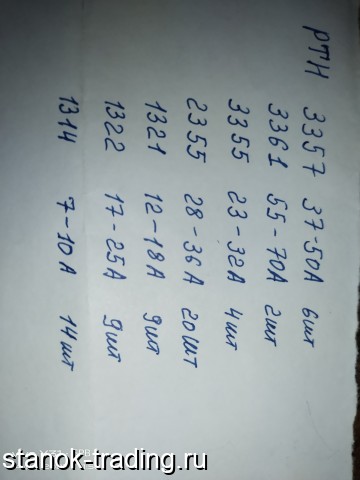 РТН 3357 37-50А 6шт
3361 55-70А 2шт
3355 23-32А 4шт
2355 28-36А 20шт
1321 12-18А 9шт
1322 17-25А 9шт
1314 7-10А 14шт
stanok-trading.ru